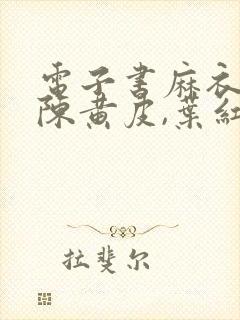 電子書麻衣
陳黃皮,葉紅
拉斐尔